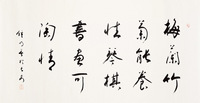 梅蘭竹
菊能養
性琴棋
書畫可
陶情